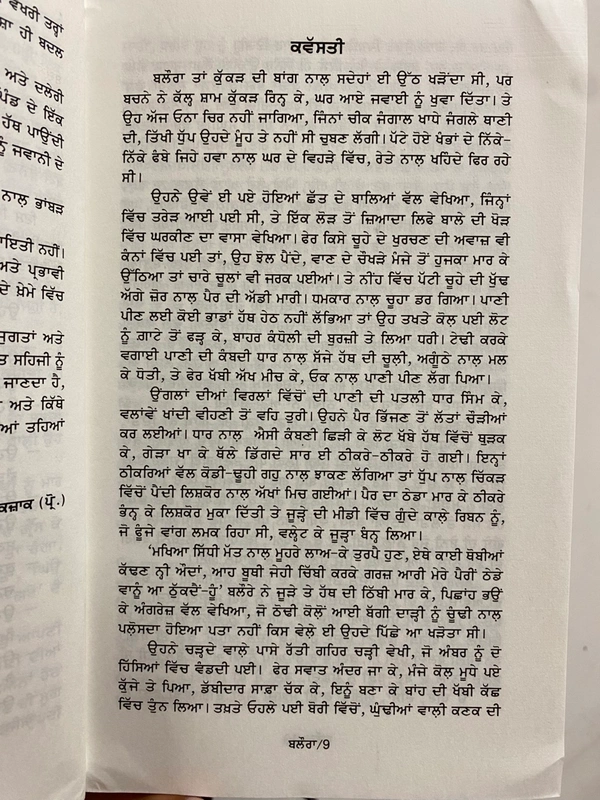 ਵੱਖਰੀ ਤਰ੍ਹਾਂ
ਹੀ ਬਦਲ
ਅਤੇ ਦਲੇਰੀ
ਪਿੰਡ ਦੇ ਇੱਕ
ਹੱਥ ਪਾਉਂਦੀ
ਨੂੰ ਜਵਾਨੀ ਦੇ
ਨਾਲ਼ ਭਾਂਬੜ
ਨਹੀਂ।
ਅਤੇ ਪ੍ਰਭਾਵੀ
ਦੇ ਖ਼ੇਮੇ ਵਿੱਚ
ਜੁਗਤਾਂ ਅਤੇ
ਸਹਿਜੀ ਨੂੰ
ਜਾਣਦਾ ਹੈ,
ਅਤੇ ਕਿੱਥੇ
ਤਹਿਆਂ
ਕਜ਼ਾਕ (ਪ੍ਰੋ.)
ਕਵੱਸਤੀ
ਬਲੌਰਾ ਤਾਂ ਕੁੱਕੜ ਦੀ ਬਾਂਗ ਨਾਲ਼ ਸਦੇਹਾਂ ਈ ਉੱਠ ਖੜੋਂਦਾ ਸੀ, ਪਰ
ਬਚਨੇ ਨੇ ਕੱਲ੍ਹ ਸ਼ਾਮ ਕੁੱਕੜ ਰਿੰਨ੍ਹ ਕੇ, ਘਰ ਆਏ ਜਵਾਈ ਨੂੰ ਖੁਵਾ ਦਿੱਤਾ। ਤੇ
ਉਹ ਅੱਜ ਓਨਾ ਚਿਰ ਨਹੀਂ ਜਾਗਿਆ, ਜਿਨਾਂ ਚੀਕ ਜੰਗਾਲ ਖਾਧੇ ਜੰਗਲੇ ਥਾਣੀ
ਦੀ, ਤਿੱਖੀ ਧੁੱਪ ਉਹਦੇ ਮੂੰਹ ਤੇ ਨਹੀਂ ਸੀ ਚੁਬਣ ਲੱਗੀ। ਪੱਟੇ ਹੋਏ ਖੰਭਾਂ ਦੇ ਨਿੱਕੇ-
ਨਿੱਕੇ ਫੰਬੇ ਜਿਹੇ ਹਵਾ ਨਾਲ਼ ਘਰ ਦੇ ਵਿਹੜੇ ਵਿੱਚ, ਰੇਤੇ ਨਾਲ਼ ਖਹਿੰਦੇ ਫਿਰ ਰਹੇ
ਸੀ।
ਉਹਨੇ ਉਵੇਂ ਈ ਪਏ ਹੋਇਆਂ ਛੱਤ ਦੇ ਬਾਲਿਆਂ ਵੱਲ ਵੇਖਿਆ, ਜਿੰਨ੍ਹਾਂ
ਵਿੱਚ ਤਰੇੜ ਆਈ ਪਈ ਸੀ, ਤੇ ਇੱਕ ਲੋੜ ਤੋਂ ਜ਼ਿਆਦਾ ਲਿਫੇ ਬਾਲੇ ਦੀ ਖੋੜ
ਵਿੱਚ ਘਰਕੀਣ ਦਾ ਵਾਸਾ ਵੇਖਿਆ। ਫੇਰ ਕਿਸੇ ਚੂਹੇ ਦੇ ਖੁਰਚਣ ਦੀ ਅਵਾਜ਼ ਵੀ
ਕੰਨਾਂ ਵਿੱਚ ਪਈ ਤਾਂ, ਉਹ ਝੋਲ ਪੈਂਦੇ, ਵਾਣ ਦੇ ਚੌਖੜੇ ਮੰਜੇ ਤੋਂ ਹੁਜਕਾ ਮਾਰ ਕੇ
ਉੱਠਿਆ ਤਾਂ ਚਾਰੇ ਚੂਲਾਂ ਵੀ ਜਰਕ ਪਈਆਂ। ਤੇ ਨੀਂਹ ਵਿੱਚ ਪੱਟੀ ਚੂਹੇ ਦੀ ਖੁੱਢ
ਅੱਗੇ ਜ਼ੋਰ ਨਾਲ਼ ਪੈਰ ਦੀ ਅੱਡੀ ਮਾਰੀ। ਧਮਕਾਰ ਨਾਲ਼ ਚੂਹਾ ਡਰ ਗਿਆ। ਪਾਣੀ
ਪੀਣ ਲਈ ਕੋਈ ਭਾਂਡਾ ਹੱਥ ਹੇਠ ਨਹੀਂ ਲੱਭਿਆ ਤਾਂ ਉਹ ਤਖਤੇ ਕੋਲ਼ ਪਈ ਲੋਟ
ਨੂੰ ਗ਼ਾਟੇ ਤੋਂ ਫੜ੍ਹ ਕੇ, ਬਾਹਰ ਕੰਧੋਲੀ ਦੀ ਬੁਰਜ਼ੀ ਤੇ ਲਿਆ ਧਰੀ। ਟੇਢੀ ਕਰਕੇ
ਵਗਾਈ ਪਾਣੀ ਦੀ ਕੰਬਦੀ ਧਾਰ ਨਾਲ਼ ਸੱਜੇ ਹੱਥ ਦੀ ਚੂਲੀ, ਅਗੂੰਠੇ ਨਾਲ਼ ਮਲ
ਕੇ ਧੋਤੀ, ਤੇ ਫੇਰ ਖੱਬੀ ਅੱਖ ਮੀਚ ਕੇ, ਓਕ ਨਾਲ਼ ਪਾਣੀ ਪੀਣ ਲੱਗ ਪਿਆ।
ਉਂਗਲਾਂ ਦੀਆਂ ਵਿਰਲਾਂ ਵਿੱਚੋਂ ਦੀ ਪਾਣੀ ਦੀ ਪਤਲੀ ਧਾਰ ਸਿੰਮ ਕੇ,
ਵਲਾਂਵੇਂ ਖਾਂਦੀ ਵੀਹਣੀ ਤੋਂ ਵਹਿ ਤੁਰੀ। ਉਹਨੇ ਪੈਰ ਭਿੱਜਣ ਤੋਂ ਲੱਤਾਂ ਚੌੜੀਆਂ
ਕਰ ਲਈਆਂ। ਧਾਰ ਨਾਲ਼ ਐਸੀ ਕੰਬਣੀ ਛਿੜੀ ਕੇ ਲੋਟ ਖੱਬੇ ਹੱਥ ਵਿੱਚੋਂ ਬੁੜਕ
ਕੇ, ਗੇੜਾ ਖਾ ਕੇ ਥੱਲੇ ਡਿੱਗਦੇ ਸਾਰ ਈ ਠੀਕਰੇ-ਠੀਕਰੇ ਹੋ ਗਈ। ਇਨ੍ਹਾਂ
ਠੀਕਰਿਆਂ ਵੱਲ ਕੋਡੀ-ਢੂਹੀ ਗਹੁ ਨਾਲ਼ ਝਾਕਣ ਲੱਗਿਆ ਤਾਂ ਧੁੱਪ ਨਾਲ਼ ਚਿੱਕੜ
ਵਿੱਚੋਂ ਪੈਂਦੀ ਲਿਸ਼ਕੋਰ ਨਾਲ਼ ਅੱਖਾਂ ਮਿਚ ਗਈਆਂ। ਪੈਰ ਦਾ ਠੇਡਾ ਮਾਰ ਕੇ ਠੀਕਰੇ
ਭੰਨ੍ਹ ਕੇ ਲਿਸ਼ਕੋਰ ਮੁਕਾ ਦਿੱਤੀ ਤੇ ਜੂੜ੍ਹੇ ਦੀ ਮੀਡੀ ਵਿੱਚ ਗੁੰਦੇ ਕਾਲ਼ੇ ਰਿਬਨ ਨੂੰ,
ਜੋ ਫੂੰਜੇ ਵਾਂਗ ਲਮਕ ਰਿਹਾ ਸੀ, ਵਲ੍ਹੇਟ ਕੇ ਜੂੜ੍ਹਾ ਬੰਨ੍ਹ ਲਿਆ।
'ਮਖਿਆ ਸਿੱਧੀ ਮੱਤ ਨਾਲ਼ ਮੂਹਰੇ ਲਾਅ-ਕੇ ਤੁਰਪੈ ਹੁਣ, ਏਥੇ ਕਾਈ ਥੋਬੀਆਂ
ਕੱਢਣ ਨ੍ਹੀ ਔਂਦਾਂ, ਆਹ ਬੂਥੀ ਜੇਹੀ ਚਿੱਬੀ ਕਰਕੇ ਗਰਜ਼ ਆਰੀ ਮੇਰੇ ਪੈਰੀਂ ਠੇਡੇ
ਵਾਨੂੰ ਆ ਠੁੱਕਦੈਂ-ਹੂੰ' ਬਲੌਰੇ ਨੇ ਜੂੜੇ ਤੇ ਹੱਥ ਦੀ ਠਿੱਬੀ ਮਾਰ ਕੇ, ਪਿਛਾਂਹ ਭਉਂ
ਕੇ ਅੰਗਰੇਜ਼ ਵੱਲ ਵੇਖਿਆ, ਜੋ ਠੋਢੀ ਕੋਲੋਂ ਆਈ ਬੱਗੀ ਦਾੜ੍ਹੀ ਨੂੰ ਚੂੰਢੀ ਨਾਲ਼
ਪਲ਼ੋਸਦਾ ਹੋਇਆ ਪਤਾ ਨਹੀਂ ਕਿਸ ਵੇਲ਼ੇ ਈ ਉਹਦੇ ਪਿੱਛੇ ਆ ਖੜੋਤਾ ਸੀ।
ਉਹਨੇ ਚੜ੍ਹਦੇ ਵਾਲ਼ੇ ਪਾਸੇ ਰੱਤੀ ਗਹਿਰ ਚੜ੍ਹੀ ਵੇਖੀ, ਜੋ ਅੰਬਰ ਨੂੰ ਦੋ
ਹਿੱਸਿਆਂ ਵਿੱਚ ਵੰਡਦੀ ਪਈ। ਫੇਰ ਸਵਾਤ ਅੰਦਰ ਜਾ ਕੇ, ਮੰਜੇ ਕੋਲ਼ ਮੂਧੇ ਪਏ
ਕੁੱਜੇ ਤੇ ਪਿਆ, ਡੱਬੀਦਾਰ ਸਾਫ਼ਾ ਚੱਕ ਕੇ, ਇਨੂੰ ਬਣਾ ਕੇ ਬਾਂਹ ਦੀ ਖੱਬੀ ਕੱਛ
ਵਿੱਚ ਤੁੰਨ ਲਿਆ। ਤਖ਼ਤੇ ਓਹਲੇ ਪਈ ਬੋਰੀ ਵਿੱਚੋਂ, ਘੁੰਢੀਆਂ ਵਾਲ਼ੀ ਕਣਕ ਦੀ
ਬਲੌਰਾ/9